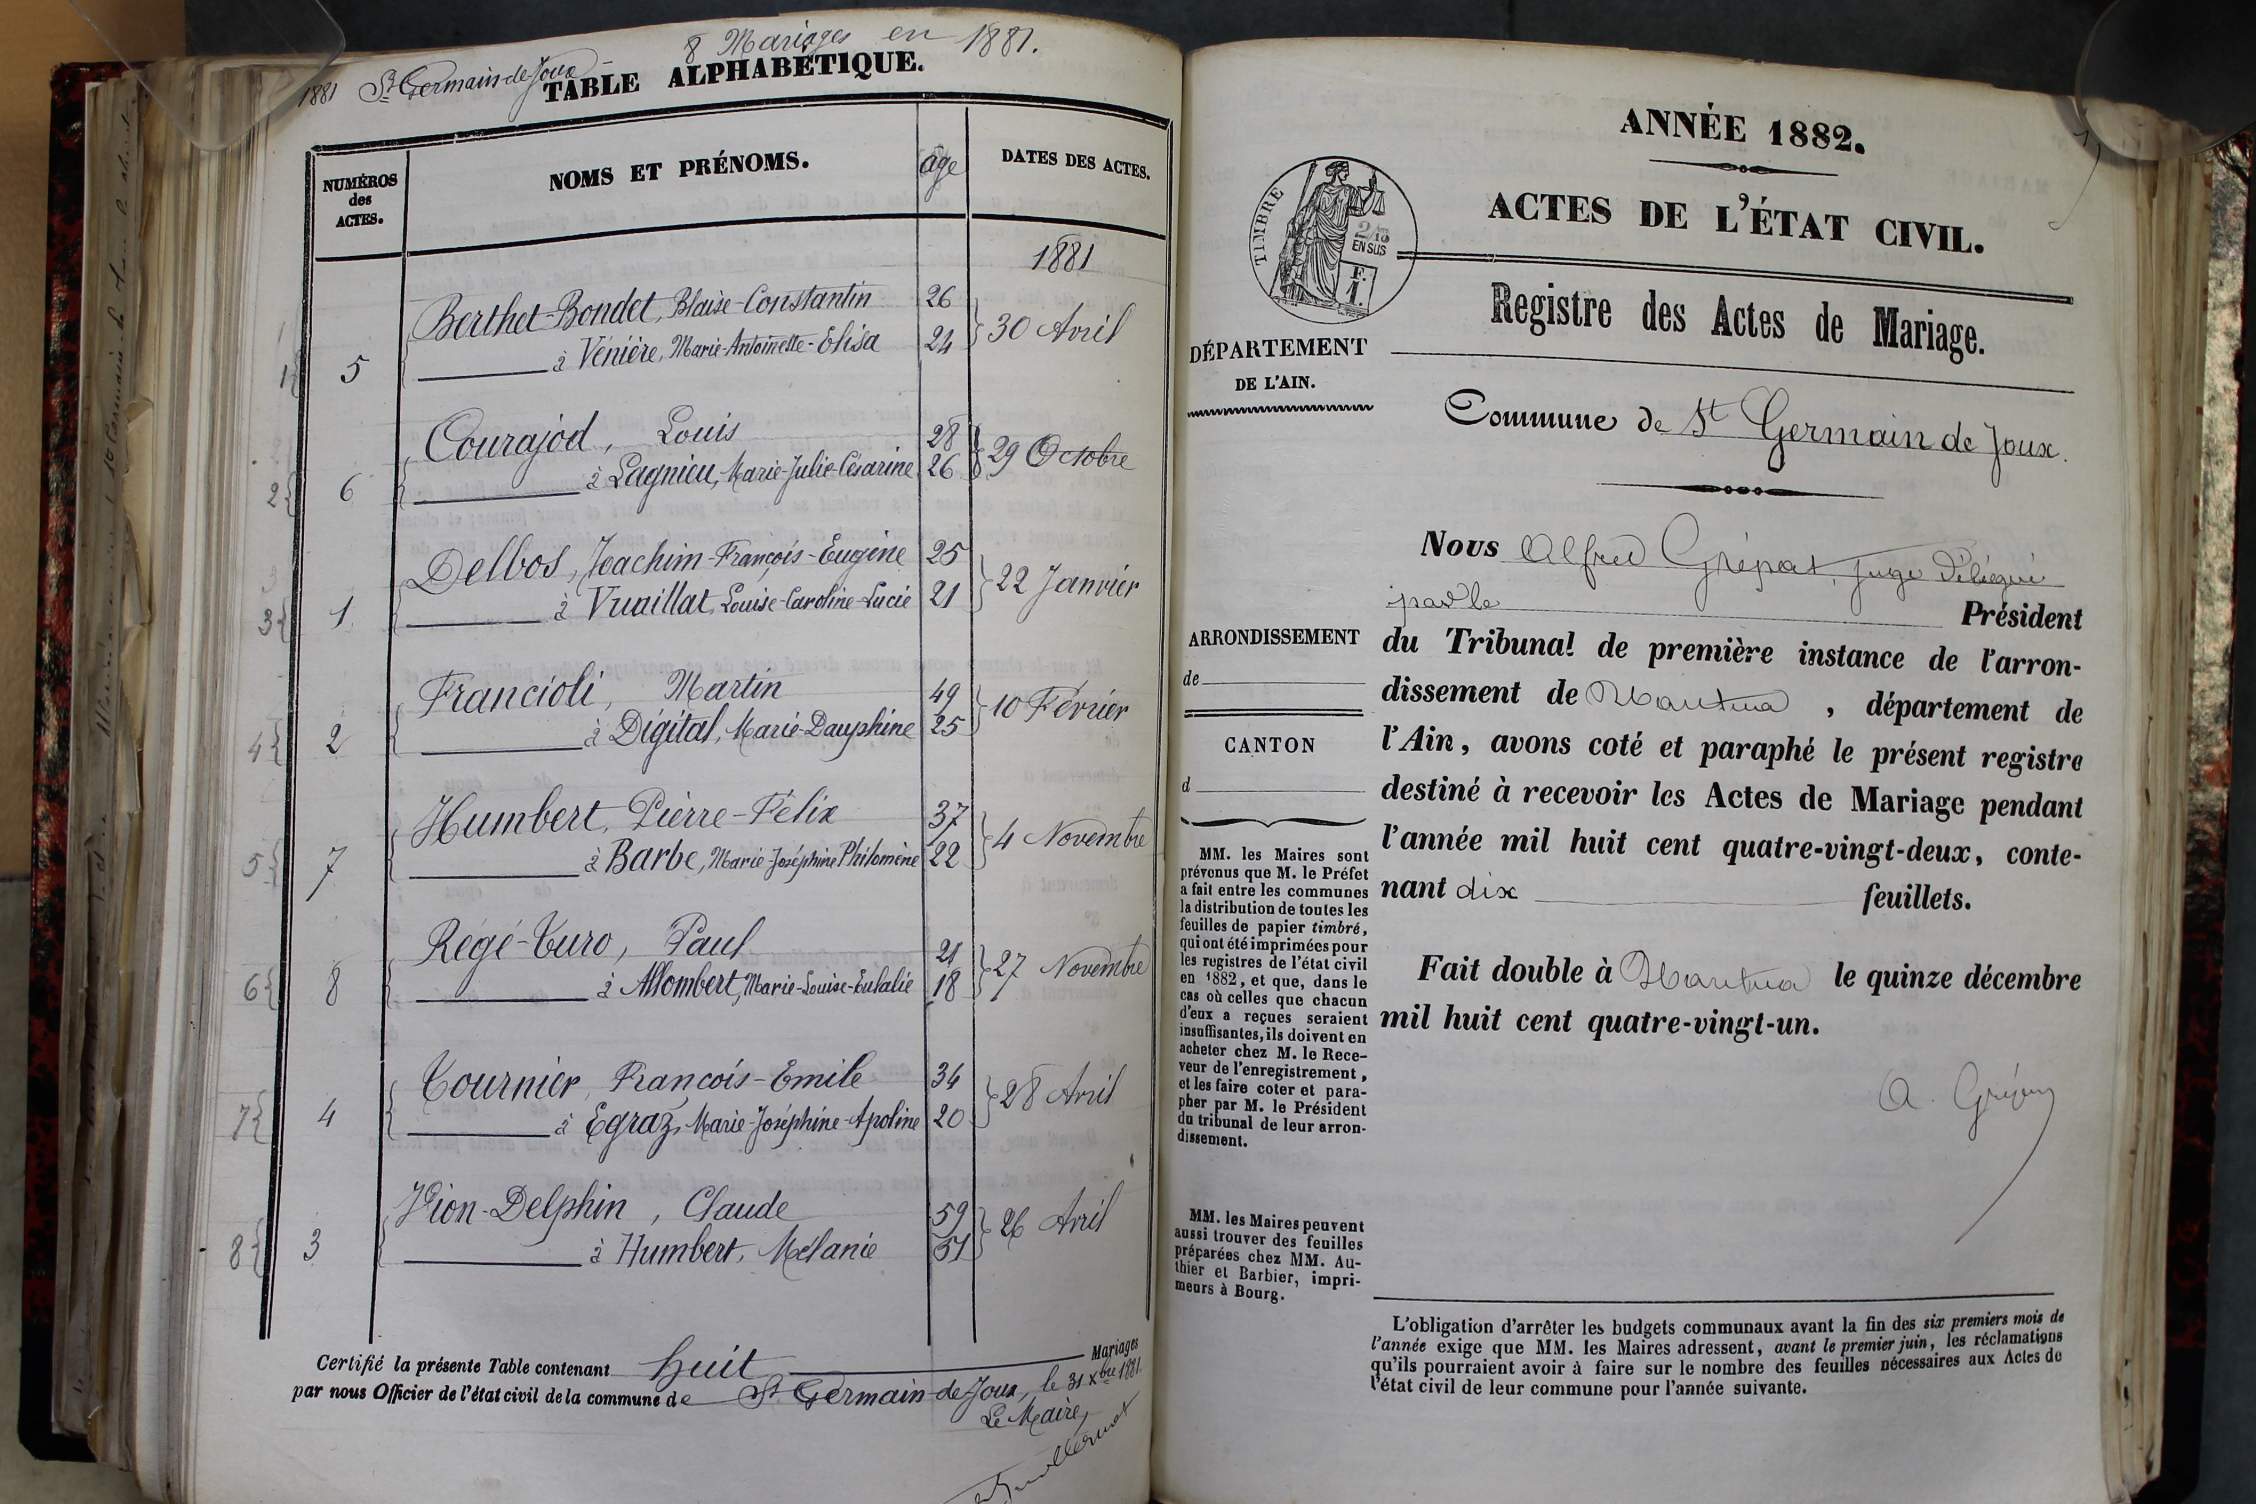 8 Mariages en 1881.
1881 St Germain-de-Joux
TABLE ALPHABÉTIQUE.
NUMÉROS des ACTES.
NOMS ET PRÉNOMS.
age
DATES DES ACTES.
1881
Berthet-Bondet, Blaise-Constantin 26
1 5 à Vénière, Marie-Antoinette-Elisa 24 30 Avril
Courajod, Louis 28
2 6 à Lagnieu, Marie-Julie-Césarine 26 29 Octobre
Delbos, Joachim-François-Eugène 25
3 1 à Vuaillat, Louise-Caroline-Lucie 21 22 Janvier
Francioli, Martin 49
4 2 à Digital, Marie-Dauphine 25 10 Février
Humbert, Pierre-Félix 37
5 7 à Barbe, Marie-Joséphine Philomène 22 4 Novembre
Régé-Turo, Paul 21
6 8 à Allombert, Marie-Louise-Eulalie 18 27 Novembre
Tournier, François-Emile 34
7 4 à Egraz, Marie-Joséphine-Apoline 20 28 Avril
Vion-Delphin, Claude 59
8 3 à Humbert, Mélanie 51 26 Avril
Certifié la présente Table contenant huit Mariages
par nous Officier de l'état civil de la commune de St Germain-de-Joux, le 31 Xbre 1881.
Le Maire,
ANNÉE 1882.
ACTES DE L'ÉTAT CIVIL.
TIMBRE
2/10
EN SUS
F.
1.
Registre des Actes de Mariage.
DÉPARTEMENT
DE L'AIN.
Commune de St Germain de Joux.
Nous Alfred Grépat, juge délégué
par le Président
du Tribunal de première instance de l'arron-
dissement de Nantua, département de
l'Ain, avons coté et paraphé le présent registre
destiné à recevoir les Actes de Mariage pendant
l'année mil huit cent quatre-vingt-deux, conte-
nant dix feuillets.
Fait double à Nantua le quinze décembre
mil huit cent quatre-vingt-un.
ARRONDISSEMENT
de
CANTON
d
MM. les Maires sont
prévenus que M. le Préfet
a fait entre les communes
la distribution de toutes les
feuilles de papier timbré,
qui ont été imprimées pour
les registres de l'état civil
en 1882, et que, dans le
cas où celles que chacun
d'eux a reçues seraient
insuffisantes, ils doivent en
acheter chez M. le Rece-
veur de l'enregistrement,
et les faire coter et para-
pher par M. le Président
du tribunal de leur arron-
dissement.
MM. les Maires peuvent
aussi trouver des feuilles
préparées chez MM. Au-
thier et Barbier, impri-
meurs à Bourg.
L'obligation d'arrêter les budgets communaux avant la fin des six premiers mois de
l'année exige que MM. les Maires adressent, avant le premier juin, les réclamations
qu'ils pourraient avoir à faire sur le nombre des feuilles nécessaires aux Actes de
l'état civil de leur commune pour l'année suivante.